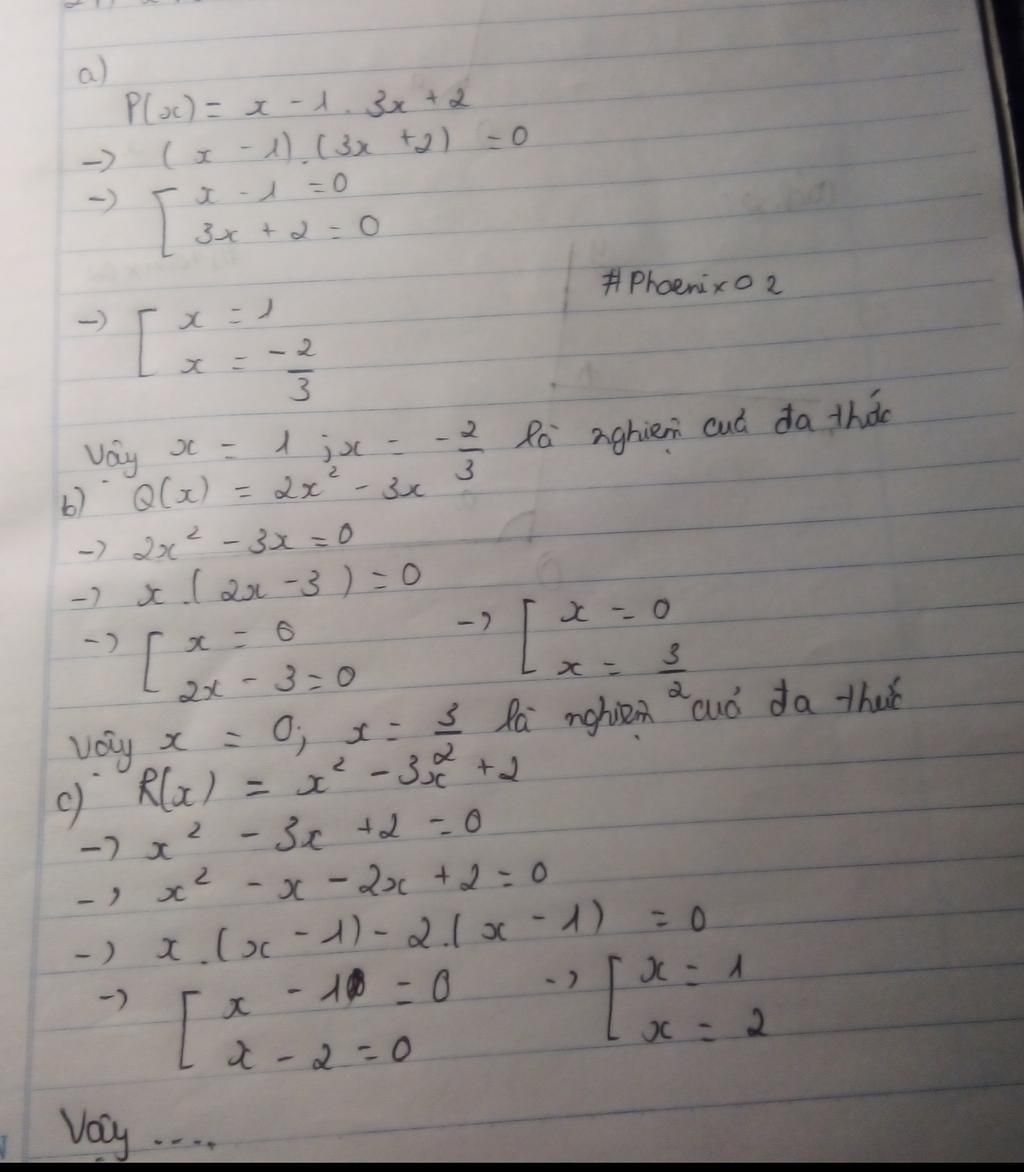 a)
P(x) = x - 1 . 3x + 2
-> (x - 1).(3x + 2) = 0
-> [ x - 1 = 0
3x + 2 = 0
#Phoenix02
-> [ x = 1
x = -2/3
Vậy x = 1 ; x = -2/3 là nghiệm cuả đa thức
b) Q(x) = 2x² - 3x
-> 2x² - 3x = 0
-> x.(2x - 3) = 0
-> [ x = 0 -> [ x = 0
2x - 3 = 0 x = 3/2
Vậy x = 0; x = 3/2 là nghiệm cuả đa thức
c) R(x) = x² - 3x + 2
-> x² - 3x + 2 = 0
-> x² - x - 2x + 2 = 0
-> x.(x - 1) - 2.(x - 1) = 0
-> [ x - 1 = 0 -> [ x = 1
x - 2 = 0 x = 2
Vậy ....